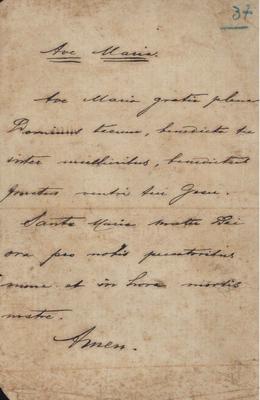 37
Ave Maria.
Ave Maria gratia plena
Dominus tecum, benedicta tu
inter mulieribus, benedictus
fructus ventri tui Jesu.
Santa Maria mater Dei
ora pro nobis pecatoribus
nunc et in hora mortis
nostre.
Amen.